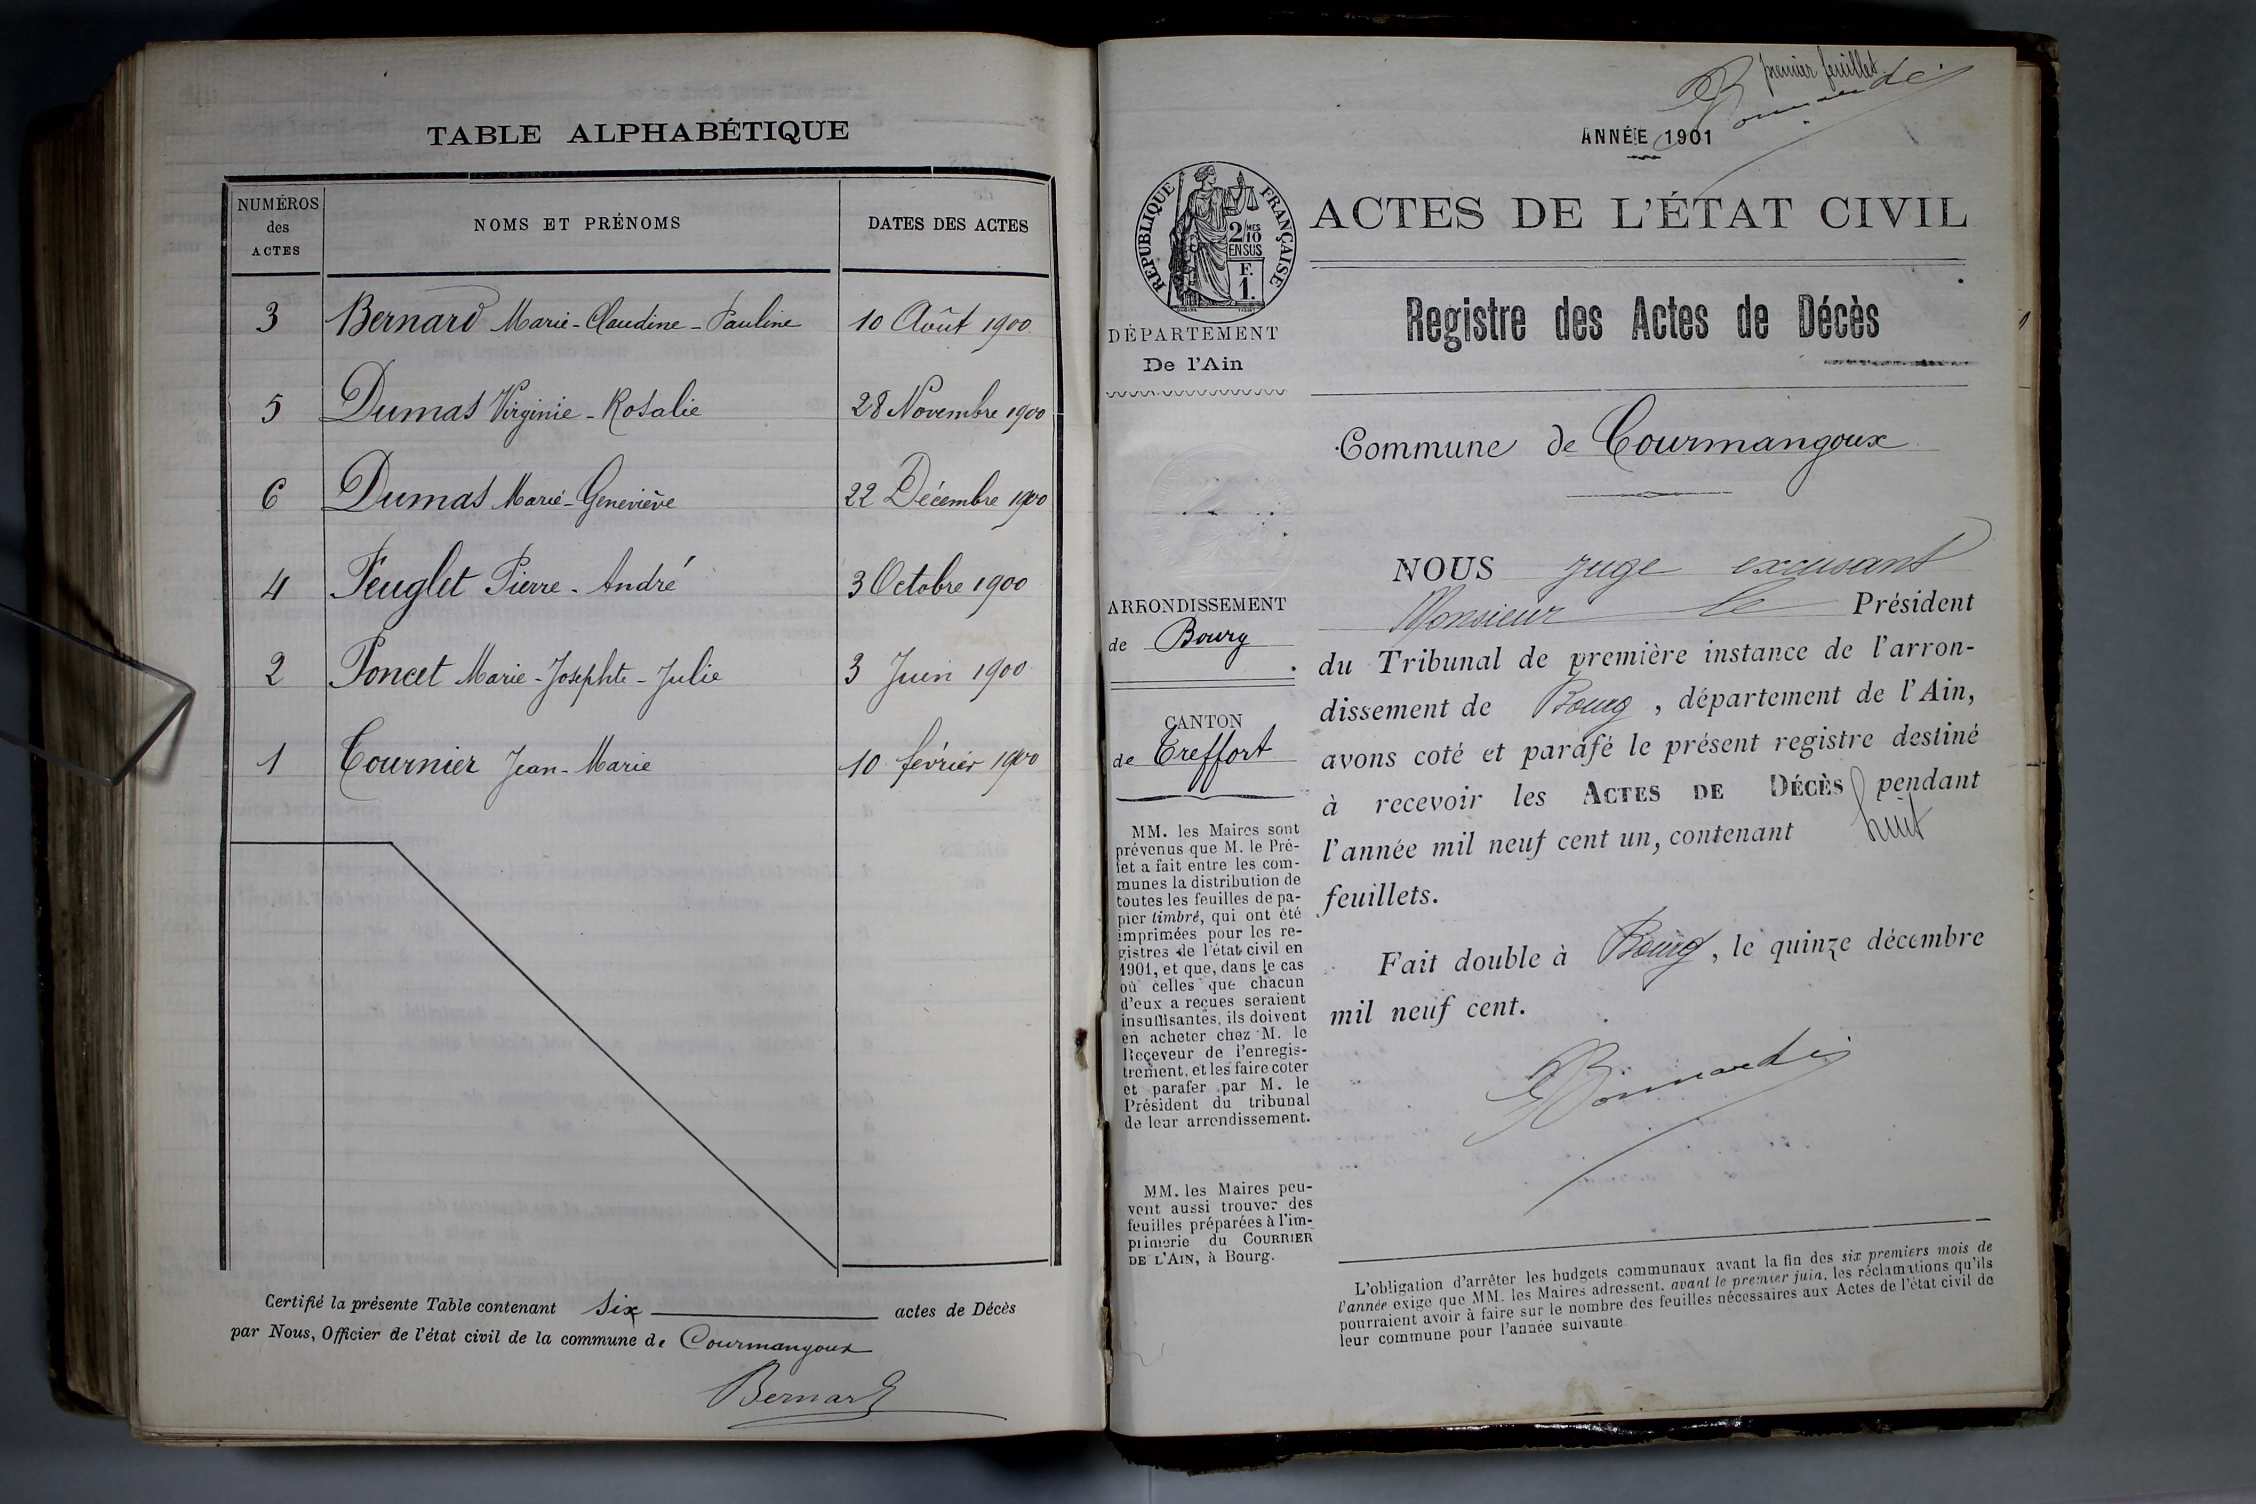 TABLE ALPHABÉTIQUE
NUMÉROS
des
ACTES
NOMS ET PRÉNOMS
DATES DES ACTES
3 Bernard Marie-Claudine-Pauline 10 Août 1900
5 Dumas Virginie-Rosalie 28 Novembre 1900
6 Dumas Marie-Geneviève 22 Décembre 1900
4 Feuglet Pierre-André 3 Octobre 1900
2 Poncet Marie-Josephte-Julie 3 Juin 1900
1 Tournier Jean-Marie 10 février 1900
Certifié la présente Table contenant six actes de Décès
par Nous, Officier de l'état civil de la commune de Courmangoux
Bernard
premier feuillet
ANNÉE 1901
RÉPUBLIQUE FRANÇAISE
2 MES
10
EN SUS
F.
1.
DÉPARTEMENT
De l'Ain
ARRONDISSEMENT
de Bourg
CANTON
de Treffort
MM. les Maires sont
prévenus que M. le Pré-
fet a fait entre les com-
munes la distribution de
toutes les feuilles de pa-
pier timbré, qui ont été
imprimées pour les re-
gistres de l'état civil en
1901, et que, dans le cas
où celles que chacun
d'eux a reçues seraient
insuffisantes, ils doivent
en acheter chez M. le
Receveur de l'enregis-
trement, et les faire coter
et parafer par M. le
Président du tribunal
de leur arrondissement.
MM. les Maires peu-
vent aussi trouver des
feuilles préparées à l'im-
primerie du COURRIER
DE L'AIN, à Bourg.
ACTES DE L'ÉTAT CIVIL
Registre des Actes de Décès
Commune de Courmangoux
NOUS juge excusant
Monsieur le Président
du Tribunal de première instance de l'arron-
dissement de Bourg, département de l'Ain,
avons coté et parafé le présent registre destiné
à recevoir les ACTES DE DÉCÈS pendant
l'année mil neuf cent un, contenant huit
feuillets.
Fait double à Bourg, le quinze décembre
mil neuf cent.
L'obligation d'arrêter les budgets communaux avant la fin des six premiers mois de
l'année exige que MM. les Maires adressent, avant le premier juin, les réclamations qu'ils
pourraient avoir à faire sur le nombre des feuilles nécessaires aux Actes de l'état civil de
leur commune pour l'année suivante